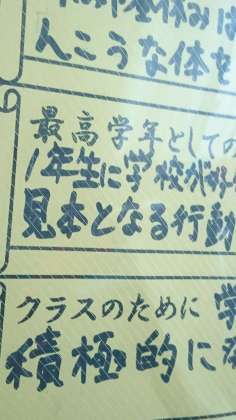 んこうな体を
最高学年としての
1年生に学校が好
見本となる行動
クラスのために 学
積極的に